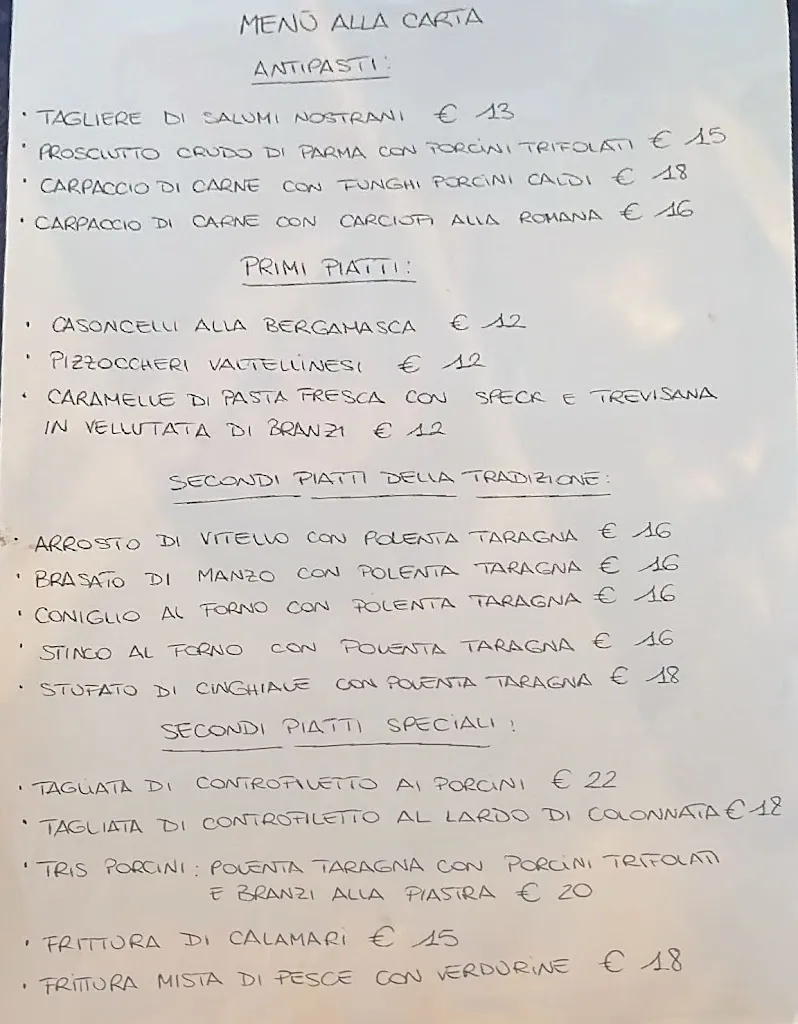 MENÙ ALLA CARTA
ANTIPASTI:
• TAGLIERE DI SALUMI NOSTRANI € 13
• PROSCIUTTO CRUDO DI PARMA CON PORCINI TRIFOLATI € 15
• CARPACCIO DI CARNE CON FUNGHI PORCINI CALDI € 18
• CARPACCIO DI CARNE CON CARCIOFI ALLA ROMANA € 16
PRIMI PIATTI:
• CASONCELLI ALLA BERGAMASCA € 12
• PIZZOCCHERI VALTELLINESI € 12
• CARAMELLE DI PASTA FRESCA CON SPECK E TREVISANA
IN VELLUTATA DI BRANZI € 12
SECONDI PIATTI DELLA TRADIZIONE:
• ARROSTO DI VITELLO CON POLENTA TARAGNA € 16
• BRASATO DI MANZO CON POLENTA TARAGNA € 16
• CONIGLIO AL FORNO CON POLENTA TARAGNA € 16
• STINCO AL FORNO CON POLENTA TARAGNA € 16
• STUFATO DI CINGHIALE CON POLENTA TARAGNA € 18
SECONDI PIATTI SPECIALI:
• TAGLIATA DI CONTROFILETTO AI PORCINI € 22
• TAGLIATA DI CONTROFILETTO AL LARDO DI COLONNATA € 18
• TRIS PORCINI: POLENTA TARAGNA CON PORCINI TRIFOLATI
E BRANZI ALLA PIASTRA € 20
• FRITTURA DI CALAMARI € 15
• FRITTURA MISTA DI PESCE CON VERDURINE € 18